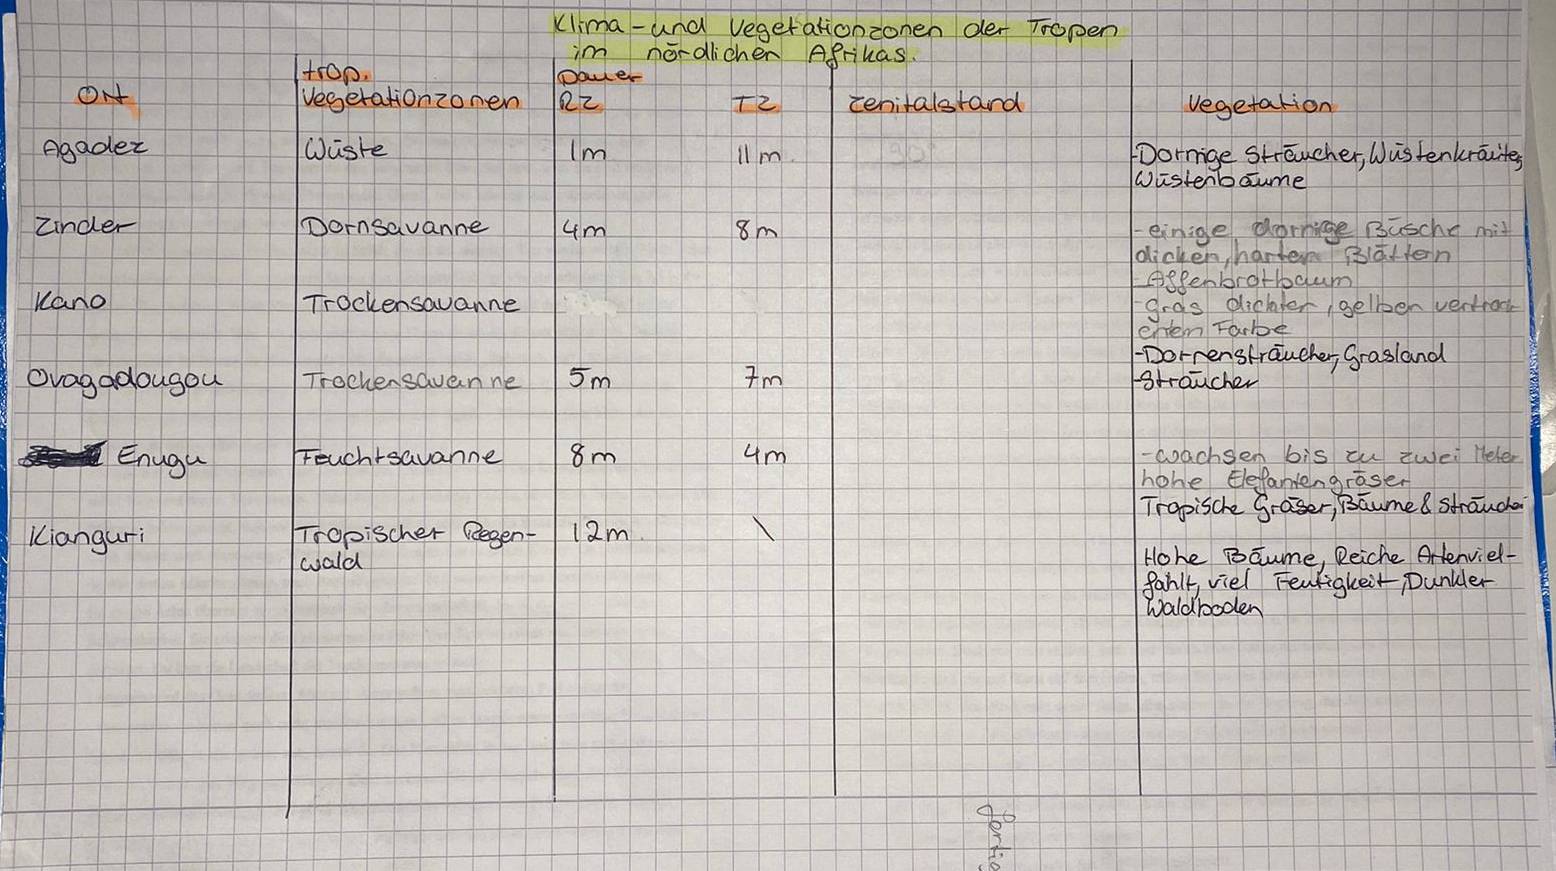 Klima-und Vegetationzonen der Tropen
im nördlichen Afrikas.
Ort
trop. Vegetationzonen
Dauer
RZ TZ
Zenitalstand
Vegetation
Agadez Wüste 1m 11m. 90°
-Dornige Sträucher, Wüstenkräuter,
Wüstenbäume
Zinder Dornsavanne 4m 8m
-einige dornige Büsche mit
dicken, harten Blättern
-Affenbrotbaum
Kano Trockensavanne
-Gras dichter, gelben vertrock
enten Farbe
-Dornensträucher, Grasland
Ovagadougou Trockensavanne 5m 7m
-Sträucher
Enugu Feuchtsavanne 8m 4m
-wachsen bis zu zwei Meter
hohe Elefantengräser
Tropische Gräser, Bäume & Sträucher
Kianguri Tropischer Regen-
wald
12m. \
Hohe Bäume, Reiche Artenviel-
fahlt, viel Feutigkeit, Dunkler
Waldboden
fertig